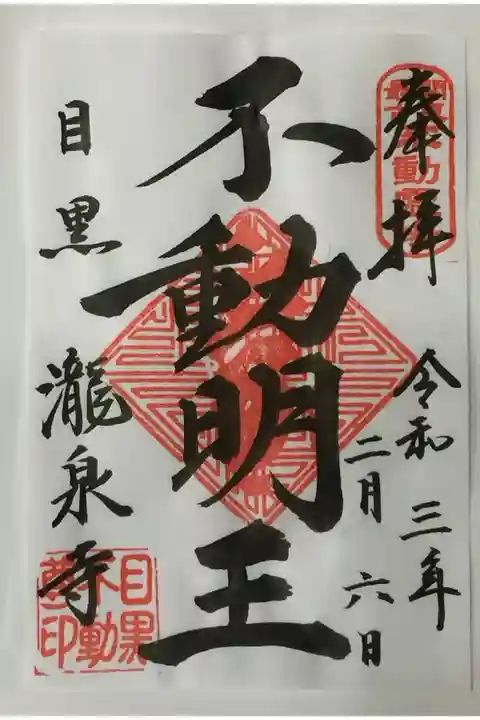 奉拝
令和三年
二月六日
不動明王
目黒瀧泉寺
目黒
不動
尊印